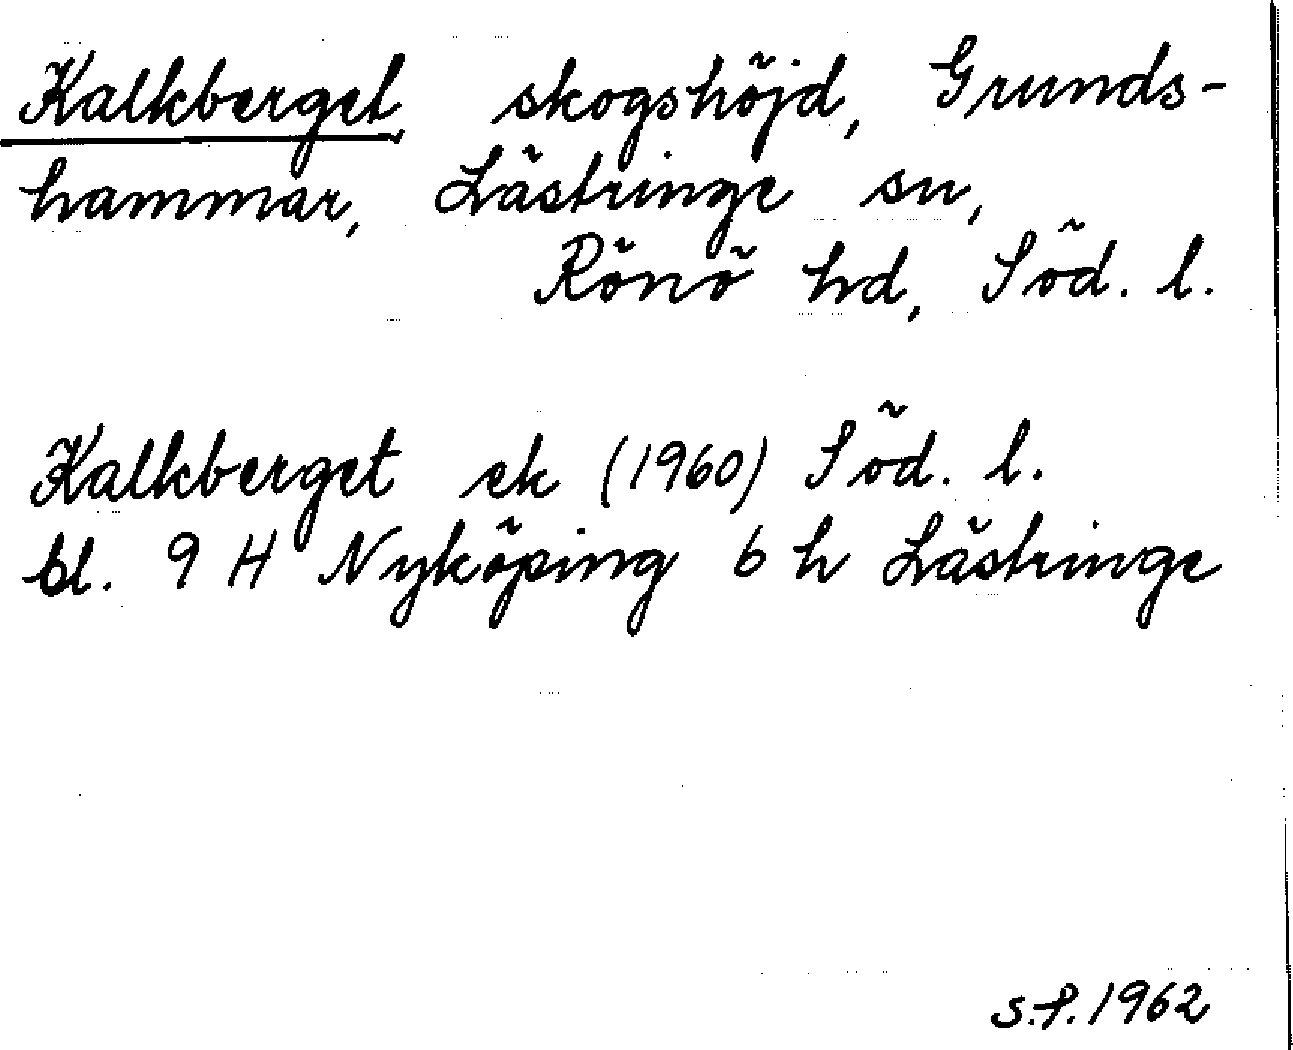 Kalkberget, skogshöjd, Grunds-
hammar, Lästringe sn,
Rönö hd, Söd. l.
Kalkberget ek (1960) Söd. l.
bl. 9 H Nyköping 6 h Lästringe
S.f. 1962